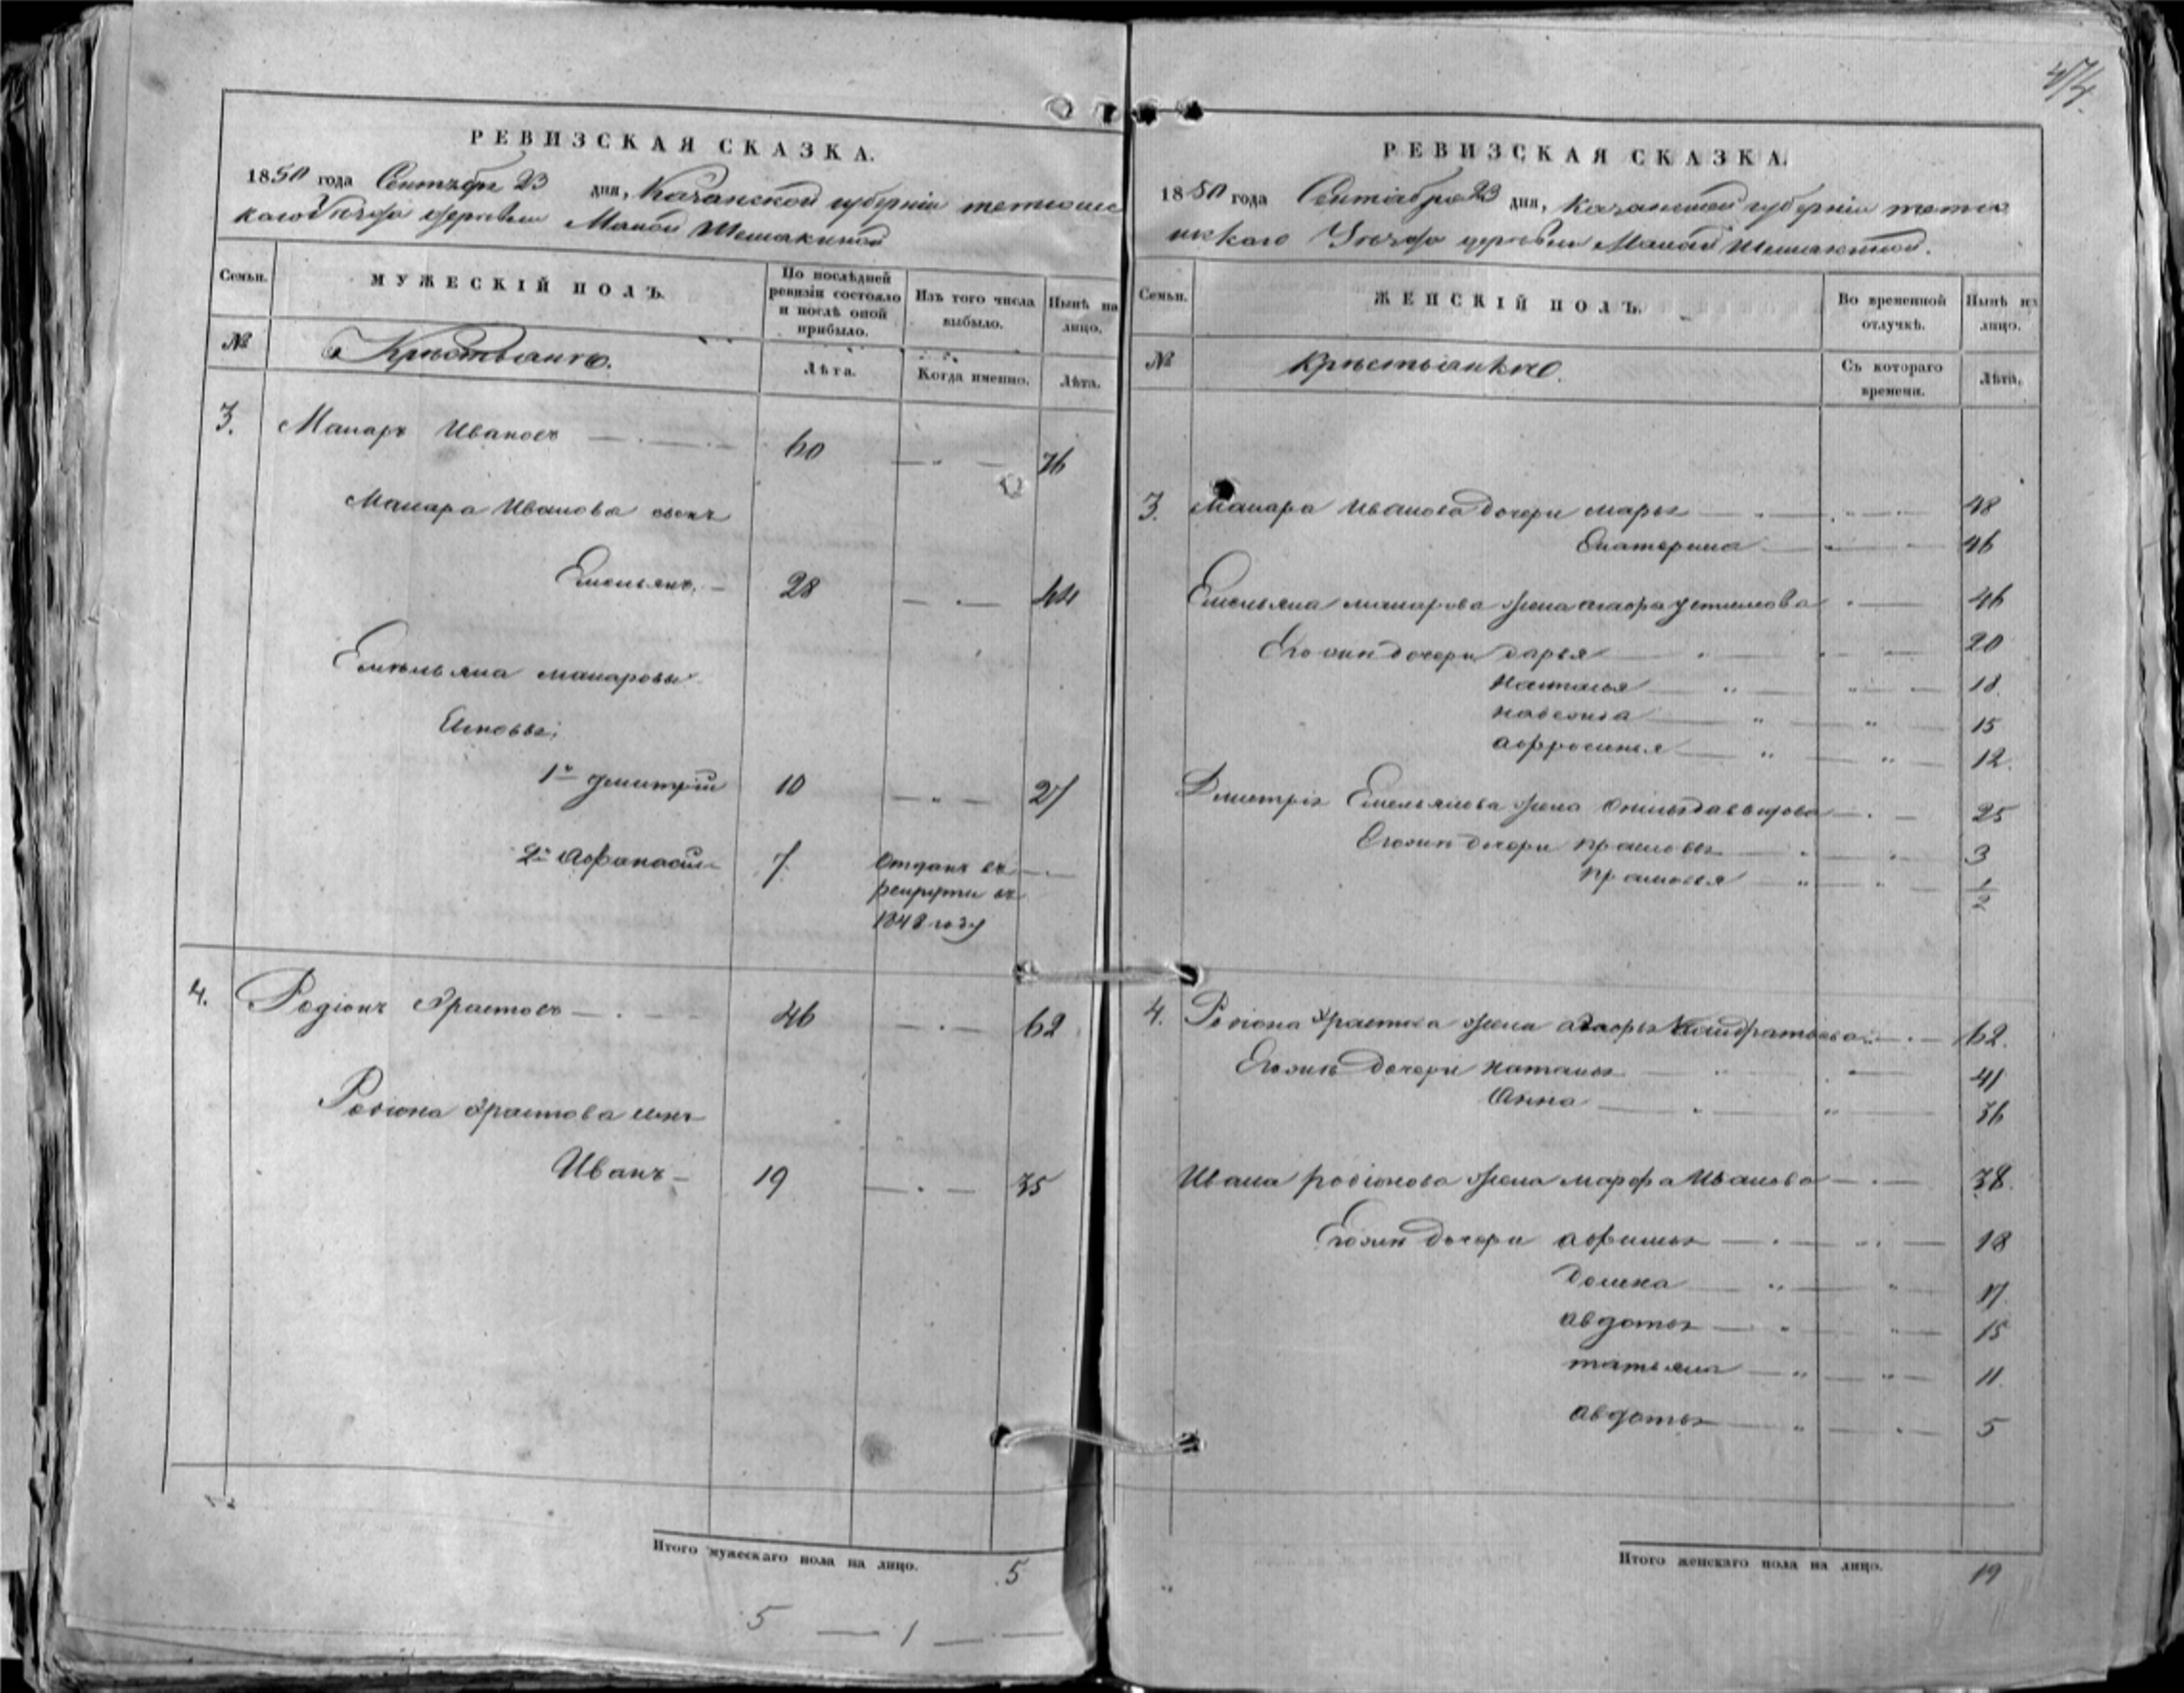 474.
РЕВИЗСКАЯ СКАЗКА.
1850 года Сентября 23 дня, Казанской губерніи тетюшс
каго Уѣзда деревни Малой Шемякиной
Семьи. МУЖЕСКІЙ ПОЛЪ. По послѣдней ревизіи состояло и послѣ оной прибыло. Изъ того числа выбыло. Нынѣ на лицо.
№ Крестьянъ. Лѣта. Когда именно. Лѣта.
3. Макаръ Ивановъ 60 76
Макара Иванова сынъ
Емельянъ 28 44
Емельяна макаровы
Сыновья;
1й Дмитрій 10 27
2й Афанасій 7 Отданъ въ
рекруты въ
1848 году
4. Родіонъ Ѳрастовъ 46 62
Родіона Ѳрастова сынъ
Иванъ 19 35
Итого мужескаго пола на лицо. 5
5 — 1 —
РЕВИЗСКАЯ СКАЗКА.
1850 года Сентября 23 дня, Казанской губерніи тетю
шскаго Уѣзда деревни Малой Шемякиной.
Семьи. ЖЕНСКІЙ ПОЛЪ. Во временной отлучкѣ. Нынѣ на лицо.
№ Крестьянъ. Съ котораго времени. Лѣта.
3. Макара Иванова Дочери марья 48
Екатерина 46
Емельяна макарова жена Устинова 46
Его жъ дочери дарья 20
Наталья 18.
надежда 15
афросинья 12.
Дмитрія Емельянова жена даввыдова 25
Его жъ дочери 3
прасковья 1/2
4. Родіона Ѳрастова жена Кандратьева 62.
Его жъ Дочери Наталья 41
Анна 36
Ивана родіонова жена марфа Иванова 38.
Его жъ Дочери афимья 18
Домна 17.
авдотья 15
татьяна 11.
авдотья 5
Итого женскаго пола на лицо. 19